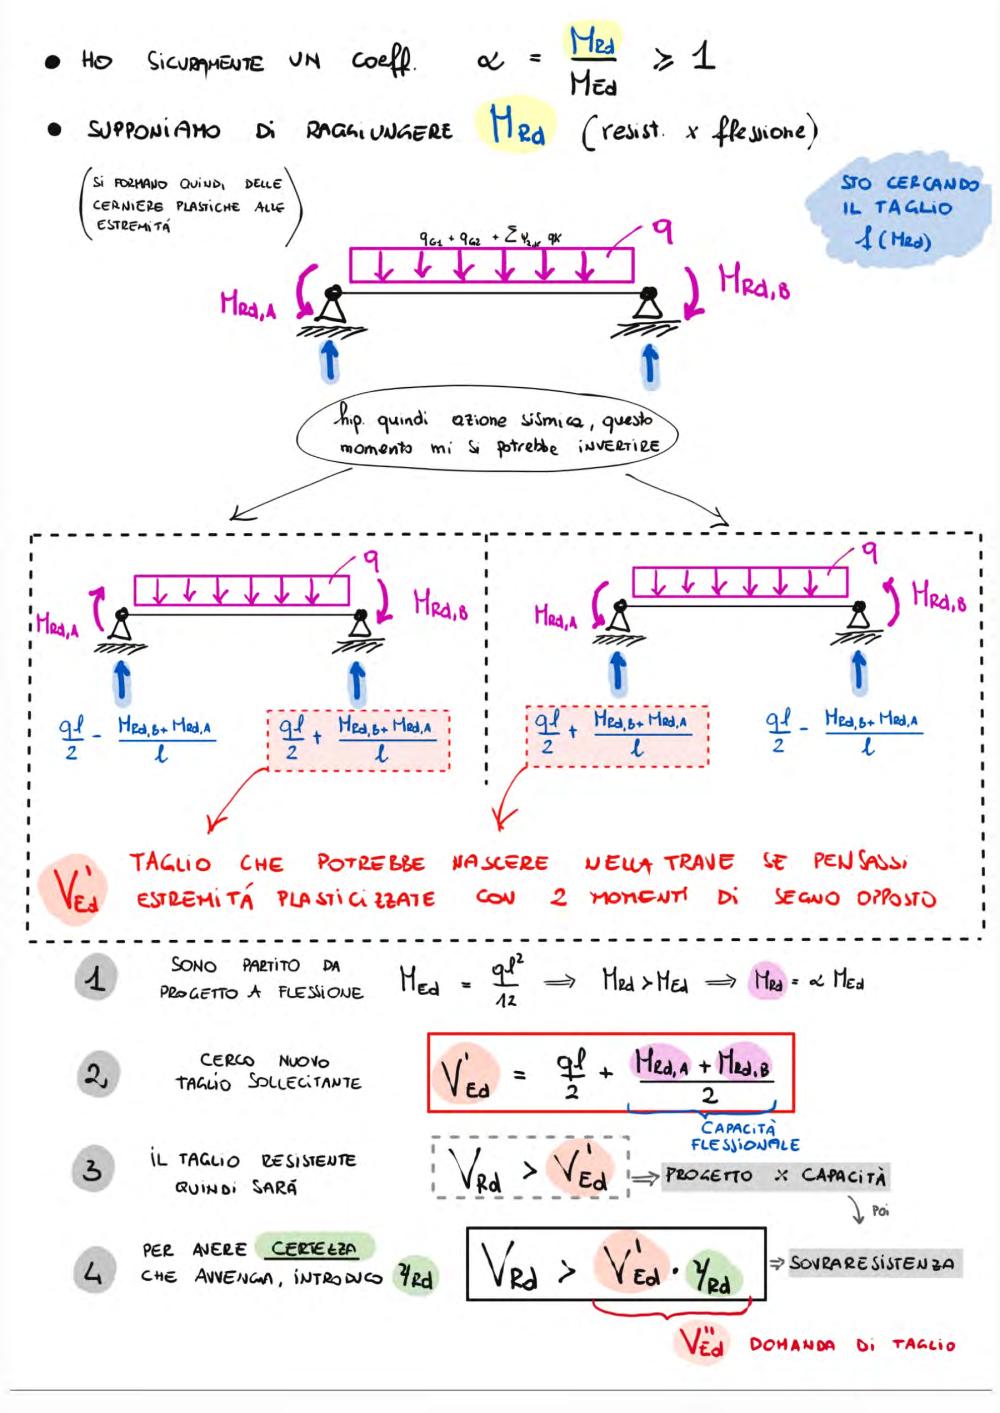 • HO SICURAMENTE UN COEFF. α = MRd / MEd ⩾ 1
• SUPPONIAMO DI RAGGIUNGERE MRd (resist. x flessione)
(SI FORMANO QUINDI DELLE
CERNIERE PLASTICHE ALLE
ESTREMITÁ)
STO CERCANDO
IL TAGLIO
f(MRd)
qG1 + qG2 + Σ Ψ2,ik qk
q
MRd,A
MRd,B
hip. quindi azione sismica, questo
momento mi si potrebbe INVERTIRE
q
MRd,A
MRd,B
q
MRd,A
MRd,B
ql/2 - (MRd,B + MRd,A)/l
ql/2 + (MRd,B + MRd,A)/l
ql/2 + (MRd,B + MRd,A)/l
ql/2 - (MRd,B + MRd,A)/l
V'Ed
TAGLIO CHE POTREBBE NASCERE NELLA TRAVE SE PENSASSI
ESTREMITÁ PLASTICIZZATE CON 2 MOMENTI DI SEGNO OPPOSTO
1
SONO PARTITO DA
PROGETTO A FLESSIONE
MEd = ql²/12 ⟹ MRd > MEd ⟹ MRd = α MEd
2
CERCO NUOVO
TAGLIO SOLLECITANTE
V'Ed = ql/2 + (MRd,A + MRd,B)/2
CAPACITÀ
FLESSIONALE
3
IL TAGLIO RESISTENTE
QUINDI SARÁ
VRd > V'Ed ⟹ PROGETTO X CAPACITÀ
POI
4
PER AVERE CERTEZZA
CHE AVVENGA, INTRODUCO γRd
VRd > V'Ed · γRd ⟹ SOVRARESISTENZA
V''Ed DOMANDA DI TAGLIO